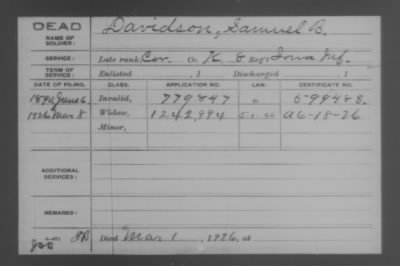 DEAD Davidson, Samuel B.
NAME OF SOLDIER:
SERVICE: Late rank, Cor. Co. K, 8 Reg't Iowa Inf.
TERM OF SERVICE: Enlisted , 1 Discharged , 1
DATE OF FILING. CLASS. APPLICATION NO. LAW. CERTIFICATE NO.
1890 June 6. Invalid, 779847 599488.
1926 Mar 8 Widow, 1242994 5-1-20 A6-18-26
Minor,
ADDITIONAL SERVICES:
REMARKS:
Died Mar 1 , 1926, at